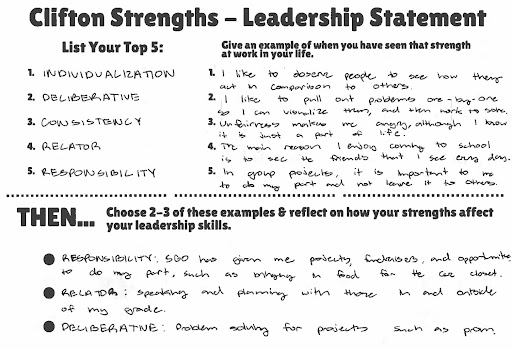 Clifton Strengths – Leadership Statement
List Your Top 5:
1. INDIVIDUALIZATION
2. DELIBERATIVE
3. CONSISTENCY
4. RELATOR
5. RESPONSIBILITY
Give an example of when you have seen that strength
at work in your life.
1. I like to observe people to see how they
act in comparison to others.
2. I like to pull out problems one-by-one
so I can visualize them, and then work to solve.
3. Unfairness makes me angry, although I know
it is just a part of life.
4. The main reason I enjoy coming to school
is to see the friends that I see every day.
5. In group projects, it is important to me
to do my part and not leave it to others.
THEN...
Choose 2–3 of these examples & reflect on how your strengths affect
your leadership skills.
RESPONSIBILITY: SGO has given me projects, fundraisers, and opportunities
to do my part, such as bringing in food for the care closet.
RELATOR: speaking and planning with those in and outside
of my grade.
DELIBERATIVE: Problem solving for projects such as prom.